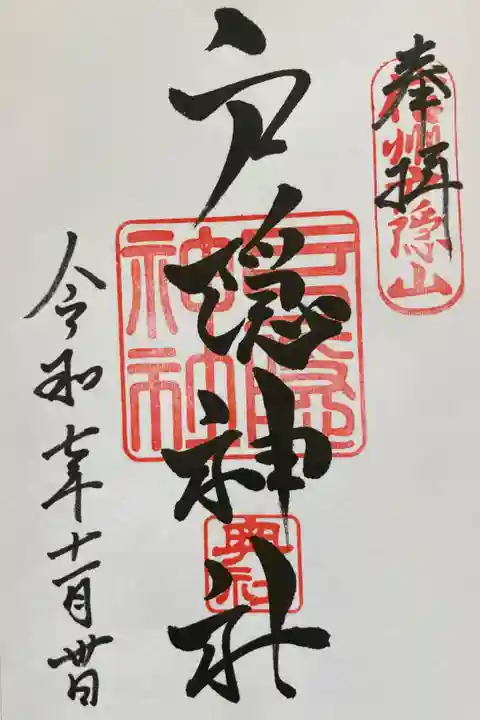 奉拝
信州戸隠山
戸隠神社
戸隠神社
奥社
令和七年十一月丗日